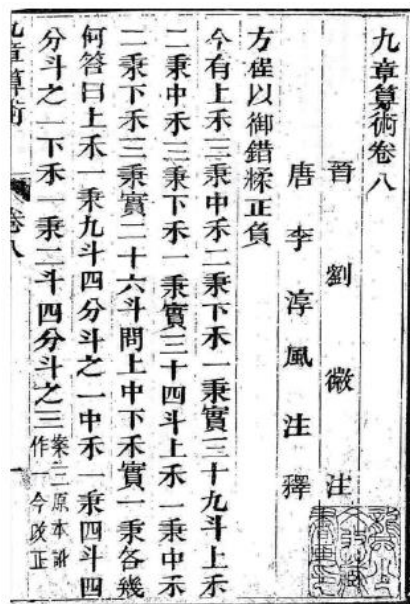 九章算術卷八
晉劉徽注
唐李淳風注釋
方程以御錯糅正負
今有上禾三秉中禾二秉下禾一秉實三十九斗上禾
二秉中禾三秉下禾一秉實三十四斗上禾一秉中禾
二秉下禾三秉實二十六斗問上中下禾實一秉各幾
何答曰上禾一秉九斗四分斗之一中禾一秉四斗四
分斗之一下禾一秉二斗四分斗之三
案三原本訛
作一今改正
九章算術 卷八 一